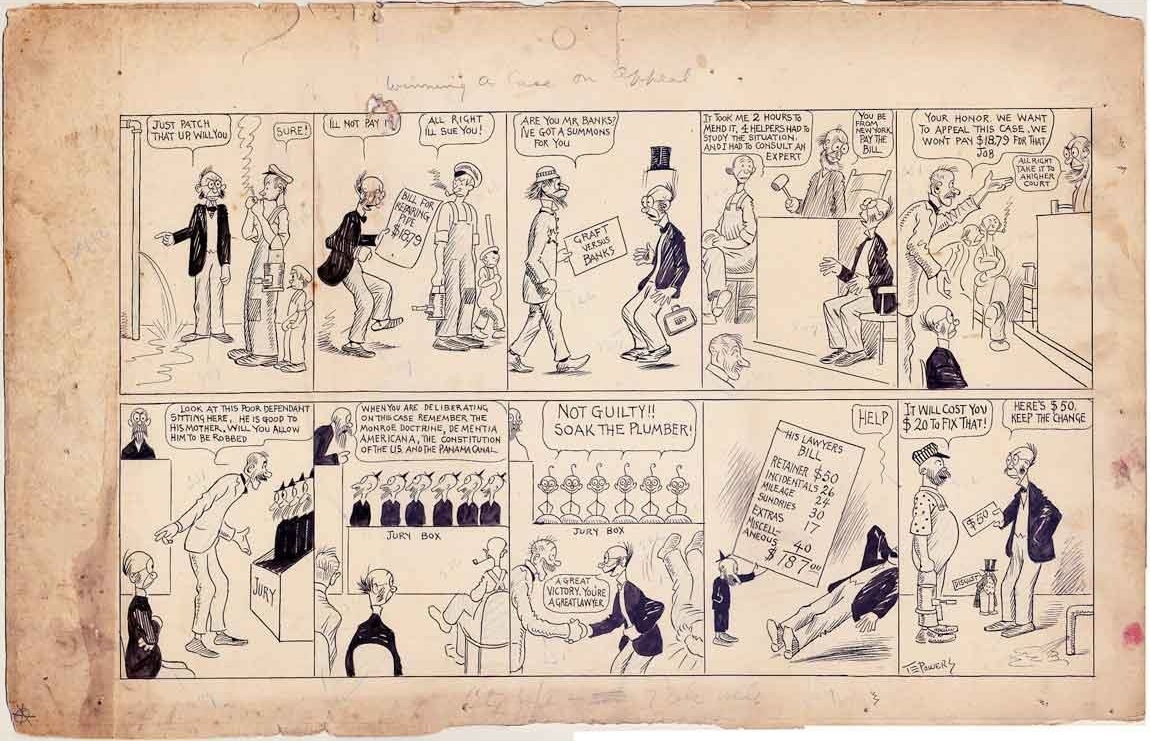 Winning A Case on Appeal
JUST PATCH
THAT UP, WILL YOU
SURE!
ILL NOT PAY IT
ALL RIGHT
ILL SUE YOU!
BILL FOR
REPAIRING
PIPE
$18.79
ARE YOU MR. BANKS?
I'VE GOT A SUMMONS
FOR YOU
GRAFT
VERSUS
BANKS
IT TOOK ME 2 HOURS TO
MEND IT, 4 HELPERS HAD TO
STUDY THE SITUATION,
AND I HAD TO CONSULT AN
EXPERT
YOU BE
FROM
NEW YORK.
PAY THE
BILL.
YOUR HONOR WE WANT
TO APPEAL THIS CASE, WE
WON'T PAY $18.79 FOR THAT
JOB
ALL RIGHT
TAKE IT TO
A HIGHER
COURT
LOOK AT THIS POOR DEPENDANT
SITTING HERE, HE IS GOOD TO
HIS MOTHER, WILL YOU ALLOW
HIM TO BE ROBBED
JURY
WHEN YOU ARE DELIBERATING
ON THIS CASE REMEMBER THE
MONROE DOCTRINE, DEMENTIA
AMERICANA, THE CONSTITUTION
OF THE U.S. AND THE PANAMA CANAL
JURY BOX
NOT GUILTY!!
SOAK THE PLUMBER!
JURY BOX
A GREAT
VICTORY. YOU'RE
A GREAT LAWYER
HELP
HIS LAWYERS
BILL
RETAINER $50
INCIDENTALS 26
MILEAGE 24
SUNDRIES 30
EXTRAS 17
MISCELL-
ANEOUS 40
$187.00
IT WILL COST YOU
$20 TO FIX THAT!
HERE'S $50.
KEEP THE CHANGE
$50
DISGUST
T.E. POWERS